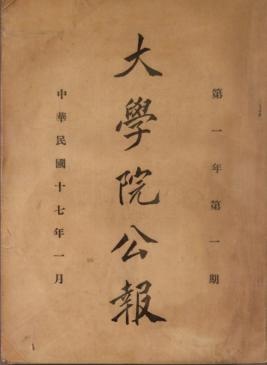 第一年第一期
大學院公報
中華民國十七年一月